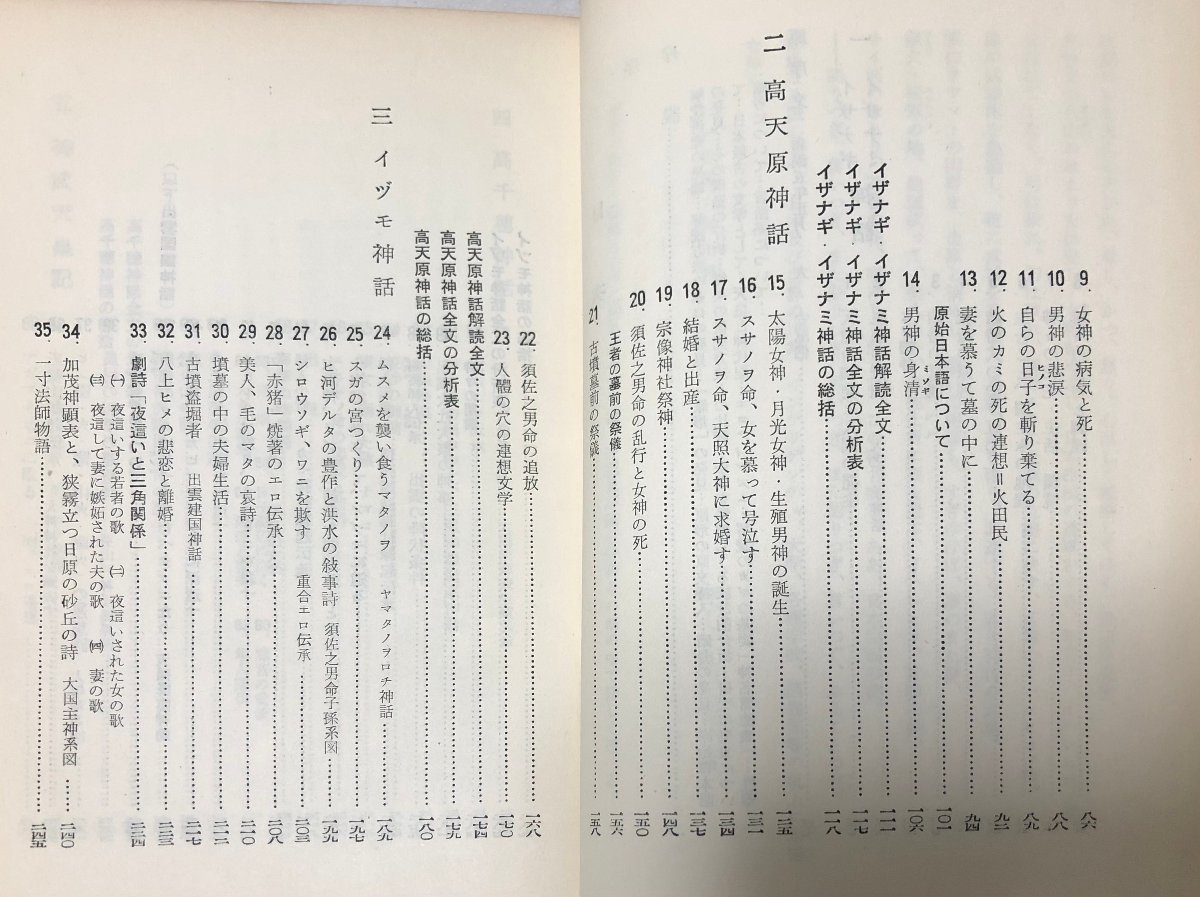 9. 女神の病気と死……八六
10. 男神の悲涙……八八
11. 自らの日子を斬り棄てる……八九
ヒノコ
12. 火のカミの死の連想＝火田民……九二
13. 妻を慕うて墓の中に……九四
原始日本語について……一〇一
14. 男神の身清……一〇六
ミソギ
イザナギ・イザナミ神話解読全文……一一一
イザナギ・イザナミ神話全文の分析表……一一七
イザナギ・イザナミ神話の総括……一一八
二 高天原神話
15. 太陽女神・月光女神 生殖男神の誕生……一二五
16. スサノヲ命、女を慕って号泣す……一三一
17. スサノヲ命、天照大神に求婚す……一三四
18. 結婚と出産……一三七
19. 宗像神社祭神……一四八
20. 須佐之男命の乱行と女神の死……一五〇
王者の墓前の祭儀……一五六
21. 古墳墓前の祭儀……一五八
22. 須佐之男命の追放……一六八
23. 人體の穴の連想文学……一七〇
高天原神話解読全文……一七四
高天原神話全文の分析表……一七九
高天原神話の総括……一八〇
三 イヅモ神話
24. ムスメを襲い食うマタノヲ ヤマタノヲロチ神話……一八九
25. スガの宮つくり……一九七
26. ヒ河デルタの豊作と洪水の敍事詩 須佐之男命子孫系図……一九九
27. シロウソギ、ワニを欺す 重合エロ伝承……二〇三
28. 「赤猪」燒著のエロ伝承……二〇八
29. 美人、毛のマタの哀詩……二一〇
30. 墳墓の中の夫婦生活……二一二
31. 古墳盗掘者 ヒ 出雲建国神話……二一七
32. 八上ヒメの悲恋と離婚……二二三
33. 劇詩「夜這いと三角関係」……二二四
㈠ 夜這いする若者の歌 ㈡ 夜這いされた女の歌
㈢ 夜這して妻に嫉妬された夫の歌 ㈣ 妻の歌
34. 加茂神顕表と、狭霧立つ日原の砂丘の詩 大国主神系図……二四〇
35. 一寸法師物語……二四五